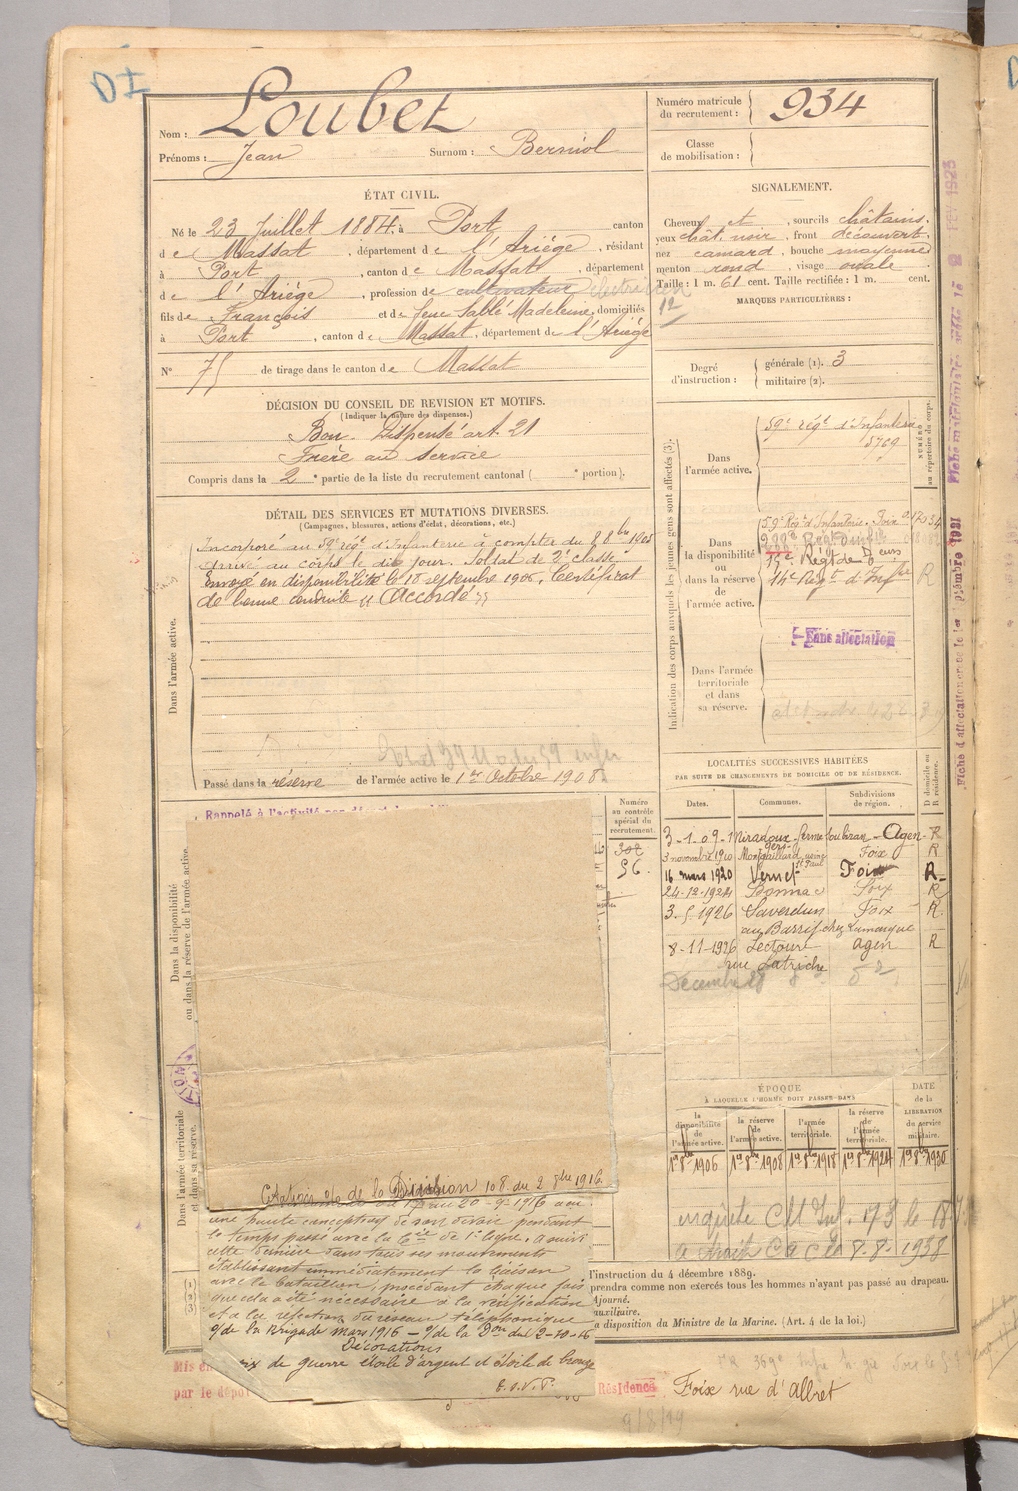 DI
Nom : Loubet
Prénoms : Jean Surnom : Berniol
Numéro matricule du recrutement : 934
Classe de mobilisation :
ÉTAT CIVIL.
Né le 23 Juillet 1884, à Port, canton
de Massat, département de l'Ariège, résidant
à Port, canton de Massat, département
de l'Ariège, profession de cultivateur électricien
fils de François et de feue Sablé Madeleine, domiciliés
à Port, canton de Massat, département de l'Ariège
N° 75 de tirage dans le canton de Massat
SIGNALEMENT.
Cheveux et, sourcils châtains.
yeux chât. noir, front découvert.
nez camard, bouche moyenne
menton rond, visage ovale.
Taille : 1 m. 61 cent. Taille rectifiée : 1 m. cent.
MARQUES PARTICULIÈRES :
12
Degré d'instruction : générale (1). 3
militaire (2).
DÉCISION DU CONSEIL DE REVISION ET MOTIFS.
(Indiquer la nature des dispenses.)
Bon. Dispensé art. 21
Frère au service
Compris dans la 2e partie de la liste du recrutement cantonal ( e portion).
DÉTAIL DES SERVICES ET MUTATIONS DIVERSES.
(Campagnes, blessures, actions d'éclat, décorations, etc.)
Dans l'armée active.
Incorporé au 59e régt d'Infanterie à compter du 8 8bre 1905
arrivé au corps le dit jour. Soldat de 2e classe
Envoyé en disponibilité le 18 septembre 1906. Certificat
de bonne conduite "Accordé"
Passé dans la réserve de l'armée active le 1er Octobre 1908
Indication des corps auxquels les jeunes gens sont affectés (3).
NUMÉRO au répertoire du corps.
Dans l'armée active.
59e régt d'Infanterie
5769
Dans la disponibilité ou dans la réserve de l'armée active.
59e Régt d'Infanterie. Foix
14e Régt d'Inf
R
Sans affectation
Dans l'armée territoriale et dans sa réserve.
LOCALITÉS SUCCESSIVES HABITÉES
PAR SUITE DE CHANGEMENTS DE DOMICILE OU DE RÉSIDENCE.
Dates. Communes. Subdivisions de région. D domicile ou R résidence.
3-1-09 Miradoux Agen R
Gers
3 novembre 1910 Montgaillard usine St Paul Foix R
16 mars 1920 Vernet Foix R
24-12-1924 Bonnac Foix R
3-5-1926 Saverdun Foix R
au Barry chez Lamarque
8-11-1926 Lectoure Agen R
rue
ÉPOQUE
À LAQUELLE L'HOMME DOIT PASSER DANS
la disponibilité de l'armée active. la réserve de l'armée active. l'armée territoriale. la réserve de l'armée territoriale. DATE de la LIBÉRATION du service militaire.
1er 8bre 1906 1er 8bre 1908 1er 8bre 1918 1er 8bre 1924 1er 8bre 1930
Numéro au contrôle spécial du recrutement.
302
56
Rappelé à l'activité
Dans la disponibilité ou dans la réserve de l'armée active.
Dans l'armée territoriale et dans sa réserve.
Citation de la Division 108 du 2 8bre 1916.
au 20-9-1916 a eu
une haute conception de son devoir pendant
le temps passé avec la Cie de 1e ligne. A suivi
cette dernière dans tous ses mouvements
établissant immédiatement la liaison
avec le bataillon, procédant chaque fois
que cela a été nécessaire à la vérification
et à la réfection du réseau téléphonique
de la Brigade mars 1916 de la Don du 2-10-16
Décorations
Croix de guerre étoile d'argent et étoile de bronze
(1)
(2)
(3)
l'instruction du 4 décembre 1889.
prendra comme non exercés tous les hommes n'ayant pas passé au drapeau.
Ajourné.
auxiliaire.
a disposition du Ministre de la Marine. (Art. 4 de la loi.)
Mis en
par le dépôt
Résidence Foix rue d'Albret
9/8/19
8-8-1938